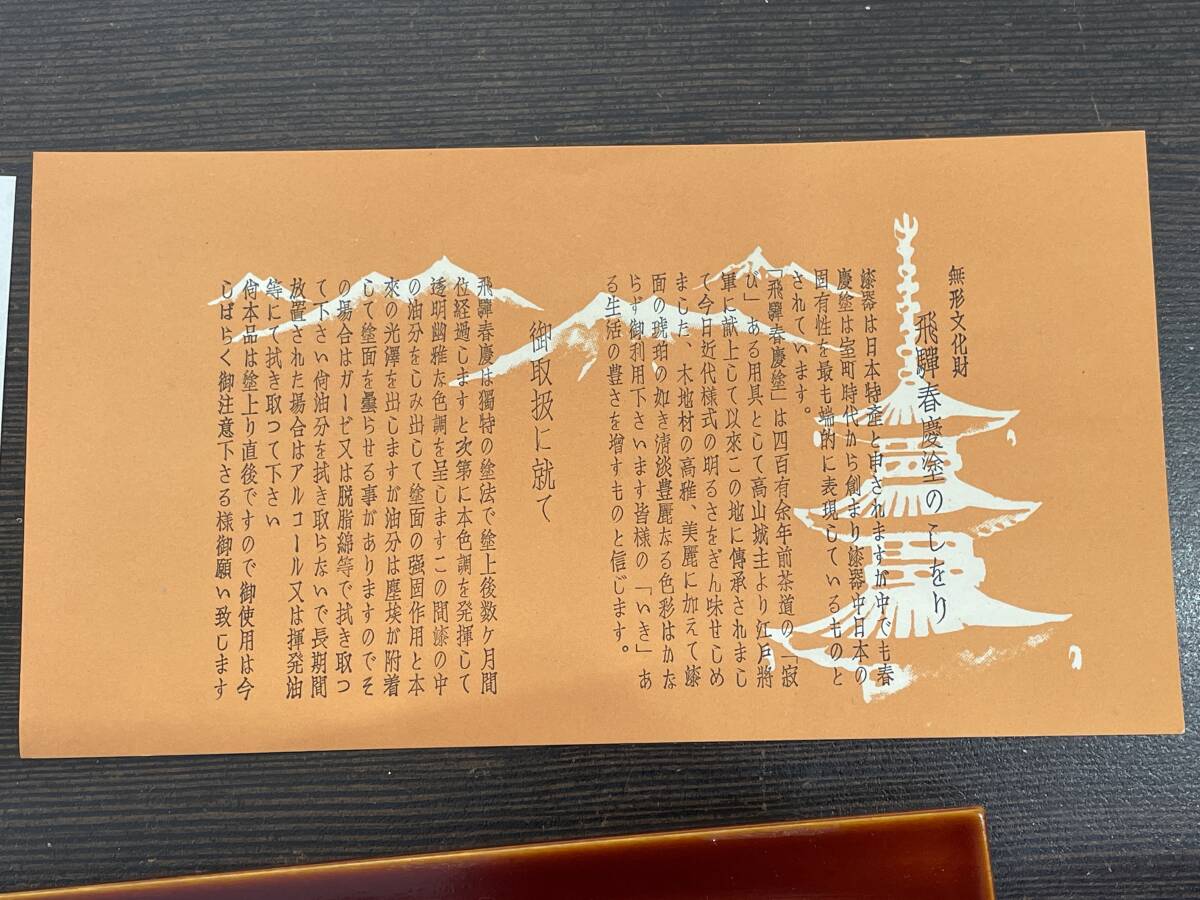 無形文化財
飛驒春慶塗のしをり
漆器は日本特產と申されますが中でも春
慶塗は室町時代から創まり漆器中日本の
固有性を最も端的に表現しているものと
されています。
「飛驒春慶塗」は四百有余年前茶道の「寂
び」ある用具として高山城主より江戸將
軍に献上して以來この地に傳承されまし
て今日近代様式の明るさをぎん味せしめ
ました、木地材の高雅、美麗に加えて漆
面の琥珀の如き清淡豊麗なる色彩はかな
らず御利用下さいます皆様の「いき」あ
る生活の豊さを增すものと信じます。
御取扱に就て
飛驒春慶は獨特の塗法で塗上後数ヶ月間
位経過しますと次第に本色調を発揮して
透明幽雅な色調を呈しますこの間漆の中
の油分をしみ出して塗面の强固作用と本
來の光澤を出しますが油分は塵埃が附着
して塗面を曇らせる事がありますのでそ
の場合はガーゼ又は脱脂綿等で拭き取つ
て下さい尙油分を拭き取らないで長期間
放置された場合はアルコール又は揮発油
等にて拭き取つて下さい
尙本品は塗上り直後ですので御使用は今
しばらく御注意下さる様御願い致します